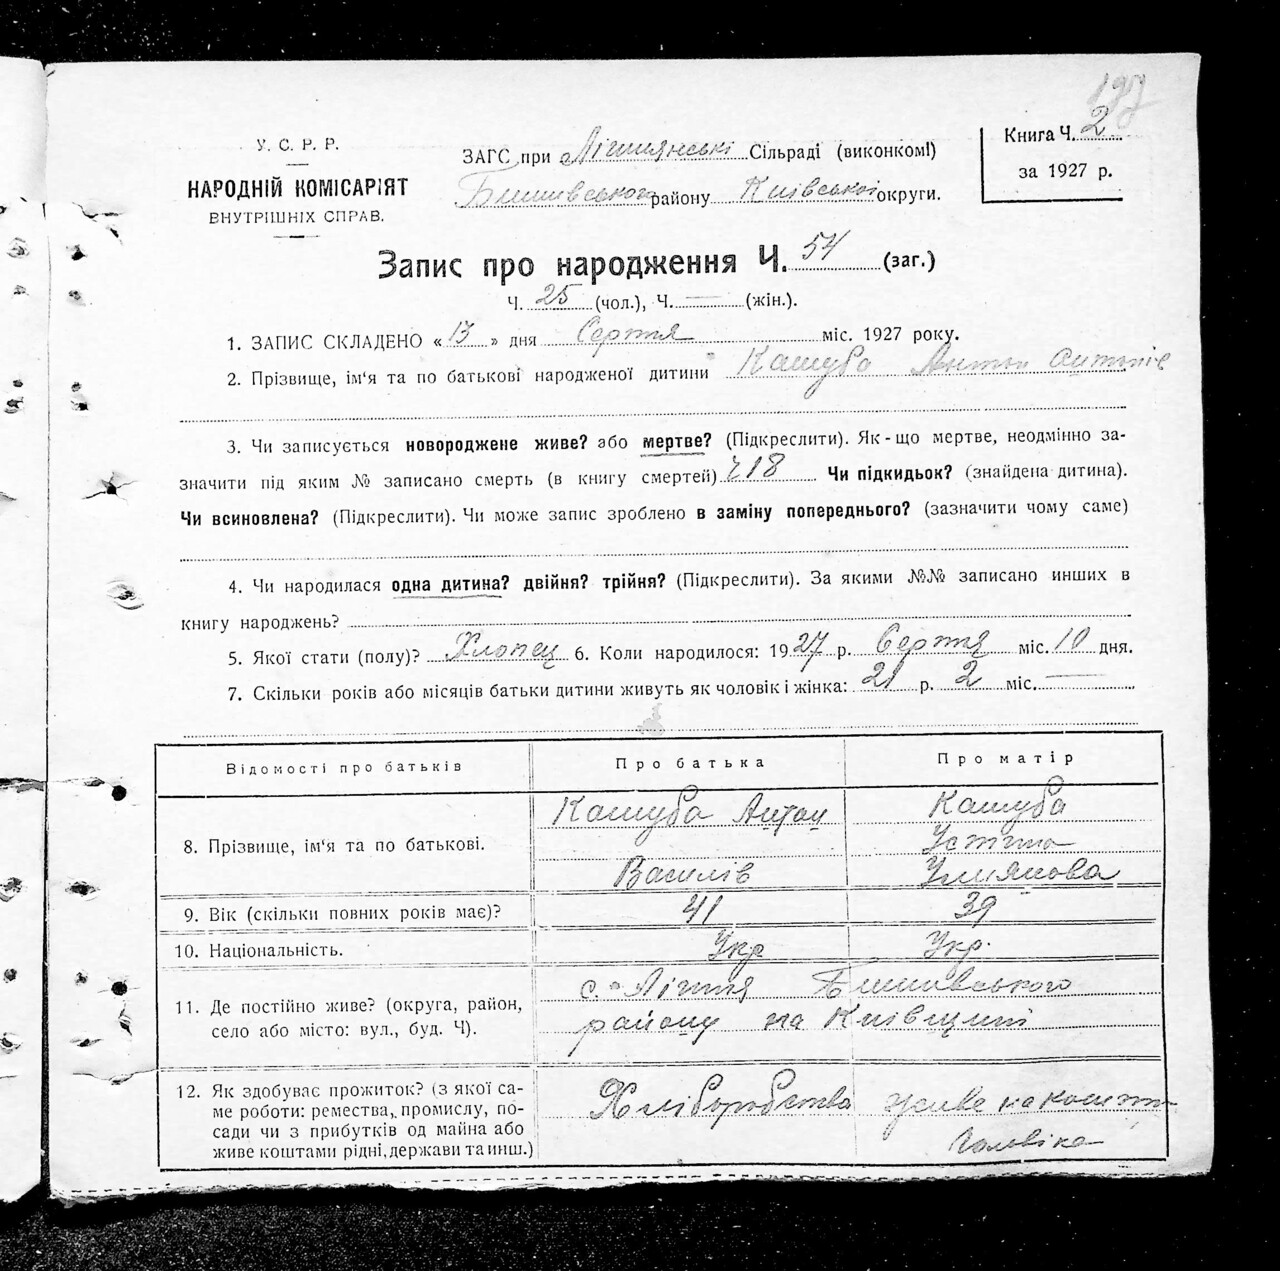 197
У. С. Р. Р.
НАРОДНІЙ КОМІСАРІЯТ
ВНУТРІШНІХ СПРАВ.
ЗАГС при Літнянські Сільраді (виконкомі)
Бишівського району Київської округи.
Книга Ч. 2
за 1927 р.
Запис про народження Ч. 54 (заг.)
Ч. 25 (чол.), Ч. — (жін.).
1. ЗАПИС СКЛАДЕНО «13» дня Серпня міс. 1927 року.
2. Прізвище, ім'я та по батькові народженої дитини Кашуба Антон Антонів
3. Чи записується новороджене живе? або мертве? (Підкреслити). Як-що мертве, неодмінно за-
значити під яким № записано смерть (в книгу смертей) ч18 Чи підкидьок? (знайдена дитина).
Чи всиновлена? (Підкреслити). Чи може запис зроблено в заміну попереднього? (зазначити чому саме)
4. Чи народилася одна дитина? двійня? трійня? (Підкреслити). За якими №№ записано инших в
книгу народжень?
5. Якої стати (полу)? Хлопец 6. Коли народилося: 1927 р. Серпня міс. 10 дня.
7. Скільки років або місяців батьки дитини живуть як чоловік і жінка: 21 р. 2 міс. —
Відомості про батьків Про батька Про матір
8. Прізвище, ім'я та по батькові. Кашуба Антон Василів Кашуба Устина
9. Вік (скільки повних років має)? 41 39
10. Національність. Укр Укр.
11. Де постійно живе? (округа, район,
село або місто: вул., буд. Ч).
с. Літня Бишівського
району на Київщині
12. Як здобуває прожиток? (з якої са-
ме роботи: ремества, промислу, по-
сади чи з прибутків од майна або
живе коштами рідні, держави та инш.)
Хліборобства живе на кошти
чоловіка